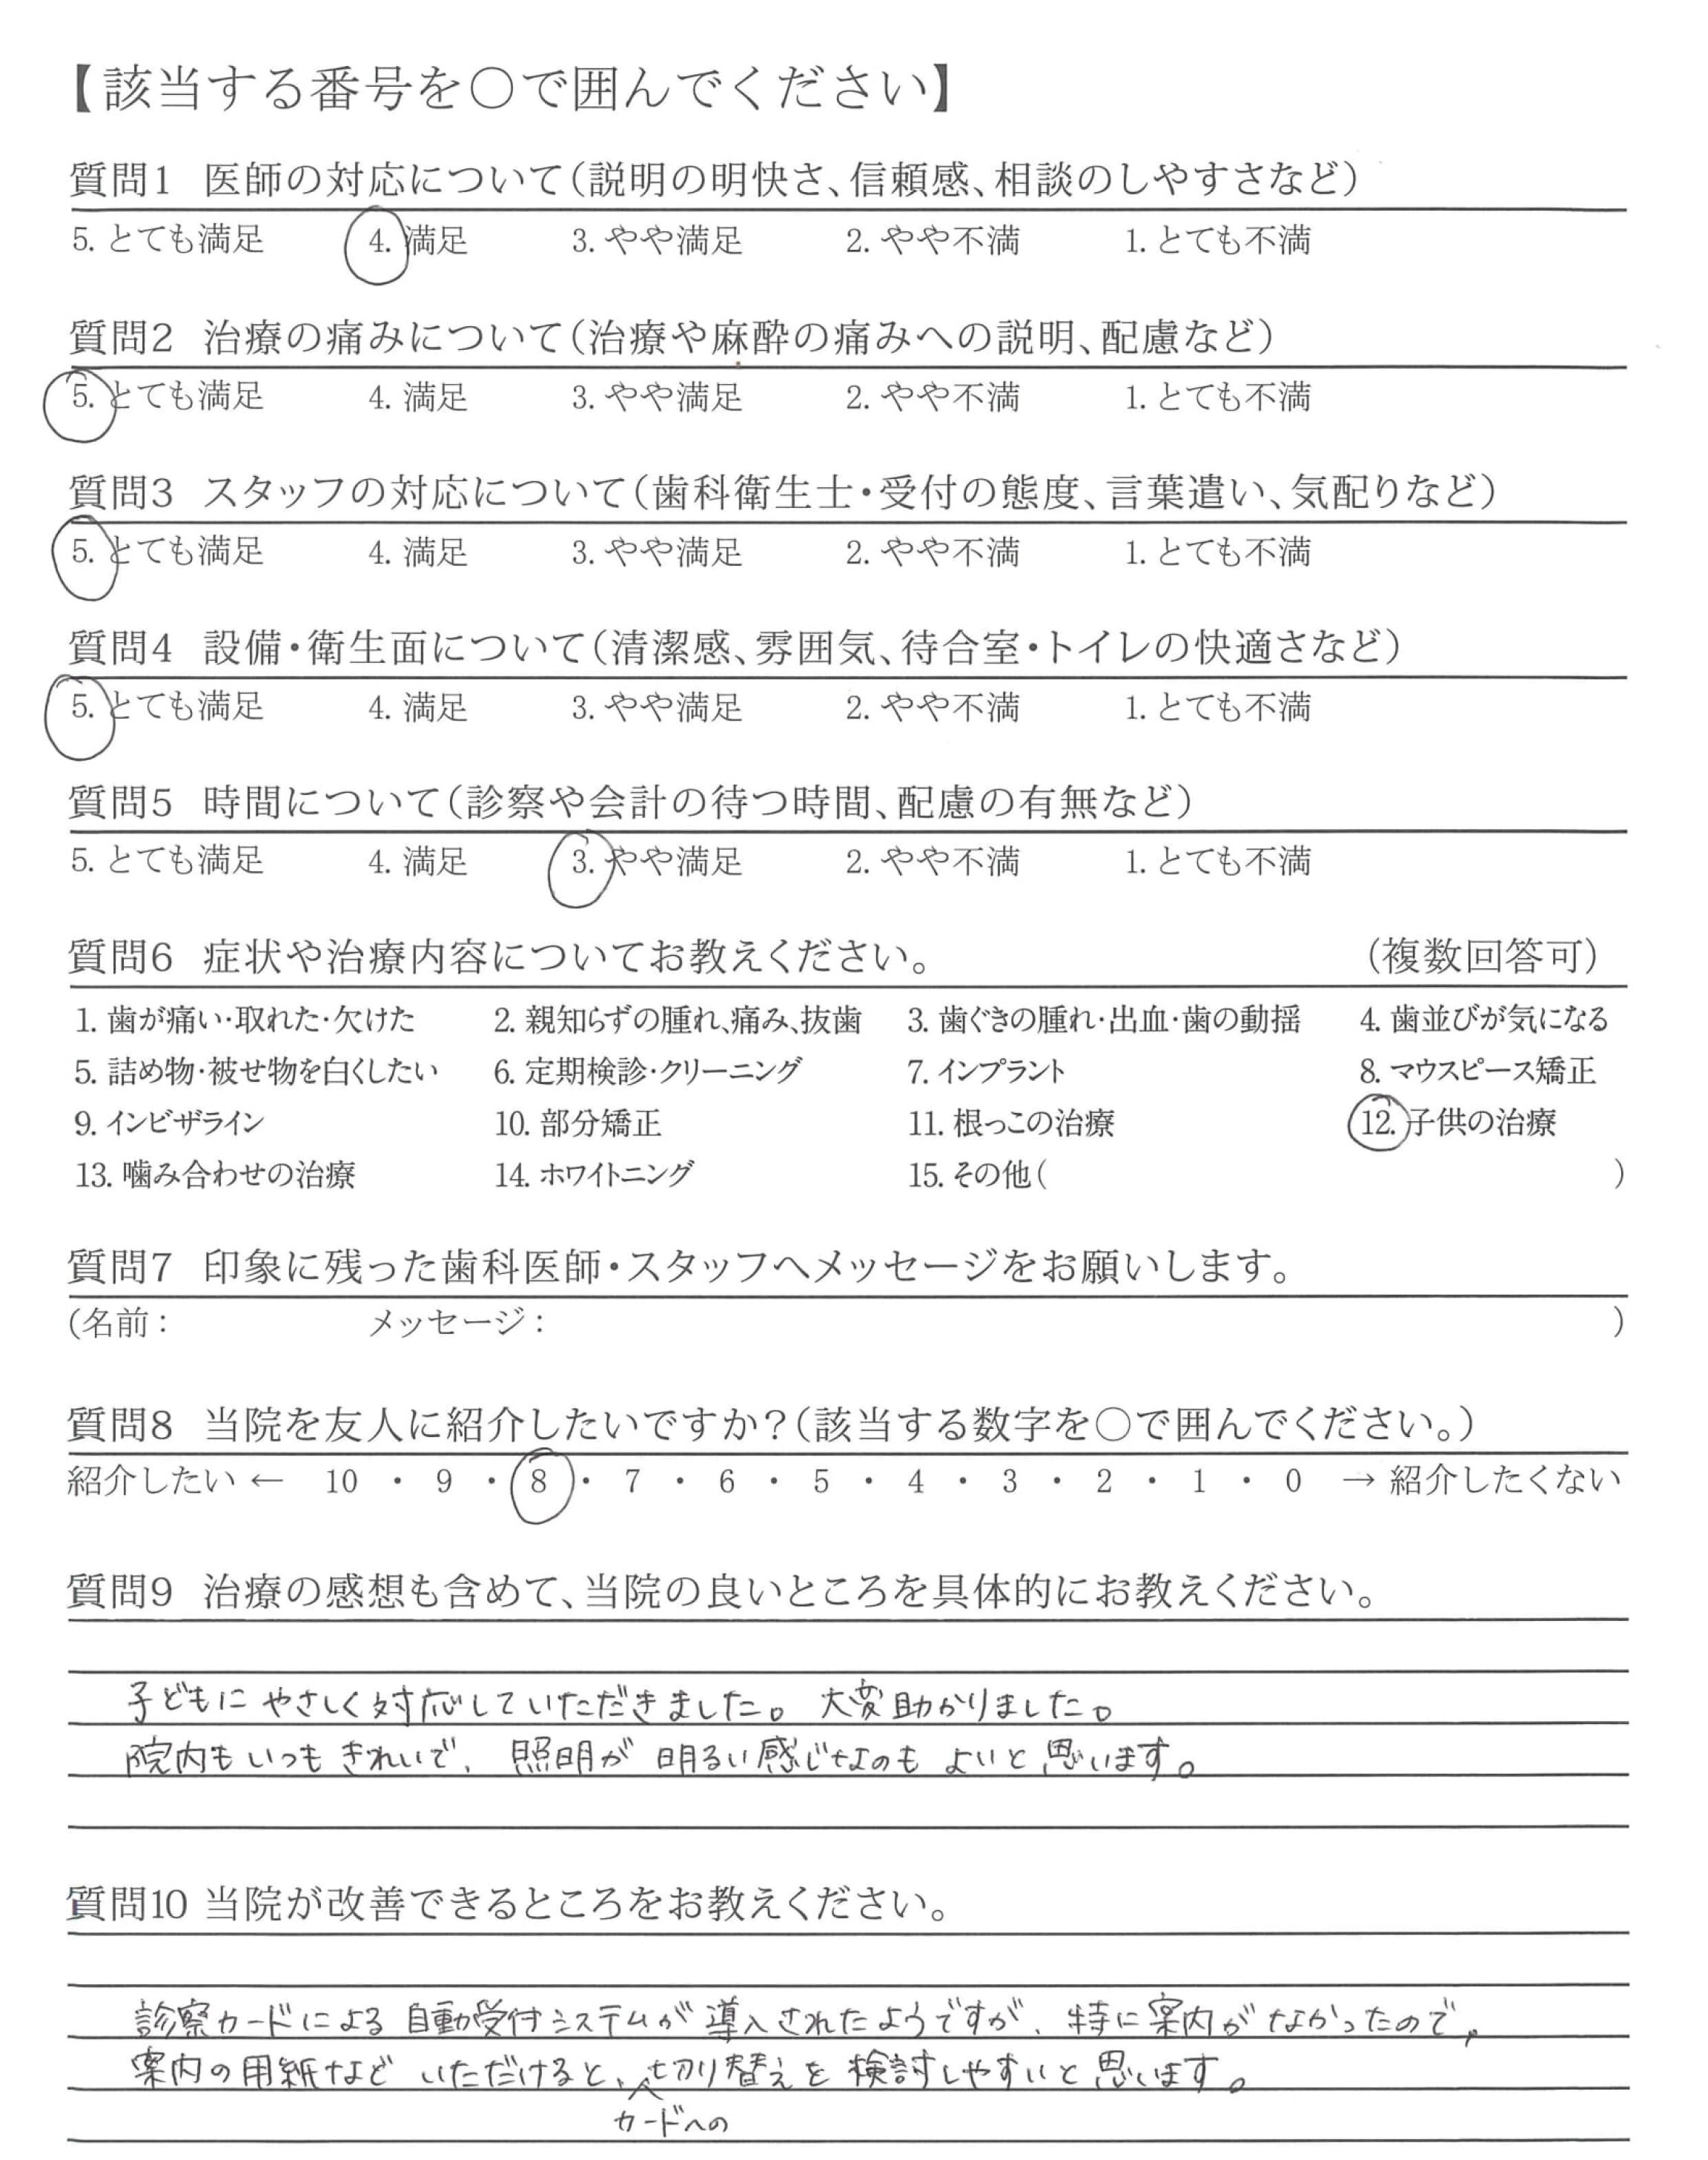 【該当する番号を〇で囲んでください】
質問1 医師の対応について（説明の明快さ、信頼感、相談のしやすさなど）
5. とても満足 4. 満足 3. やや満足 2. やや不満 1. とても不満
質問2 治療の痛みについて（治療や麻酔の痛みへの説明、配慮など）
5. とても満足 4. 満足 3. やや満足 2. やや不満 1. とても不満
質問3 スタッフの対応について（歯科衛生士・受付の態度、言葉遣い、気配りなど）
5. とても満足 4. 満足 3. やや満足 2. やや不満 1. とても不満
質問4 設備・衛生面について（清潔感、雰囲気、待合室・トイレの快適さなど）
5. とても満足 4. 満足 3. やや満足 2. やや不満 1. とても不満
質問5 時間について（診察や会計の待つ時間、配慮の有無など）
5. とても満足 4. 満足 3. やや満足 2. やや不満 1. とても不満
質問6 症状や治療内容についてお教えください。 （複数回答可）
1. 歯が痛い・取れた・欠けた 2. 親知らずの腫れ、痛み、抜歯 3. 歯ぐきの腫れ・出血・歯の動揺 4. 歯並びが気になる
5. 詰め物・被せ物を白くしたい 6. 定期検診・クリーニング 7. インプラント 8. マウスピース矯正
9. インビザライン 10. 部分矯正 11. 根っこの治療 12. 子供の治療
13. 噛み合わせの治療 14. ホワイトニング 15. その他（ ）
質問7 印象に残った歯科医師・スタッフへメッセージをお願いします。
（名前： メッセージ： ）
質問8 当院を友人に紹介したいですか？（該当する数字を〇で囲んでください。）
紹介したい ← 10 ・ 9 ・ 8 ・ 7 ・ 6 ・ 5 ・ 4 ・ 3 ・ 2 ・ 1 ・ 0 → 紹介したくない
質問9 治療の感想も含めて、当院の良いところを具体的にお教えください。
子どもに やさしく対応していただきました。 大変助かりました。
院内もいつも きれいで、照明が 明るい感じなのも よいと思います。
質問10 当院が改善できるところをお教えください。
診察カードによる 自動受付システムが 導入されたようですが、特に案内がなかったので、
案内の用紙など いただけると、切り替えを検討しやすいと思います。
カードへの